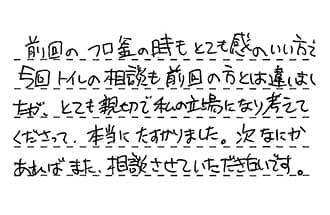 前回のフロ釜の時もとても感のいい方で
今回トイレの相談も前回の方とは違いまし
たが、とても親切で私の立場になり考えて
くださって、本当にたすかりました。次なにか
あればまた、相談させていただき白いです。